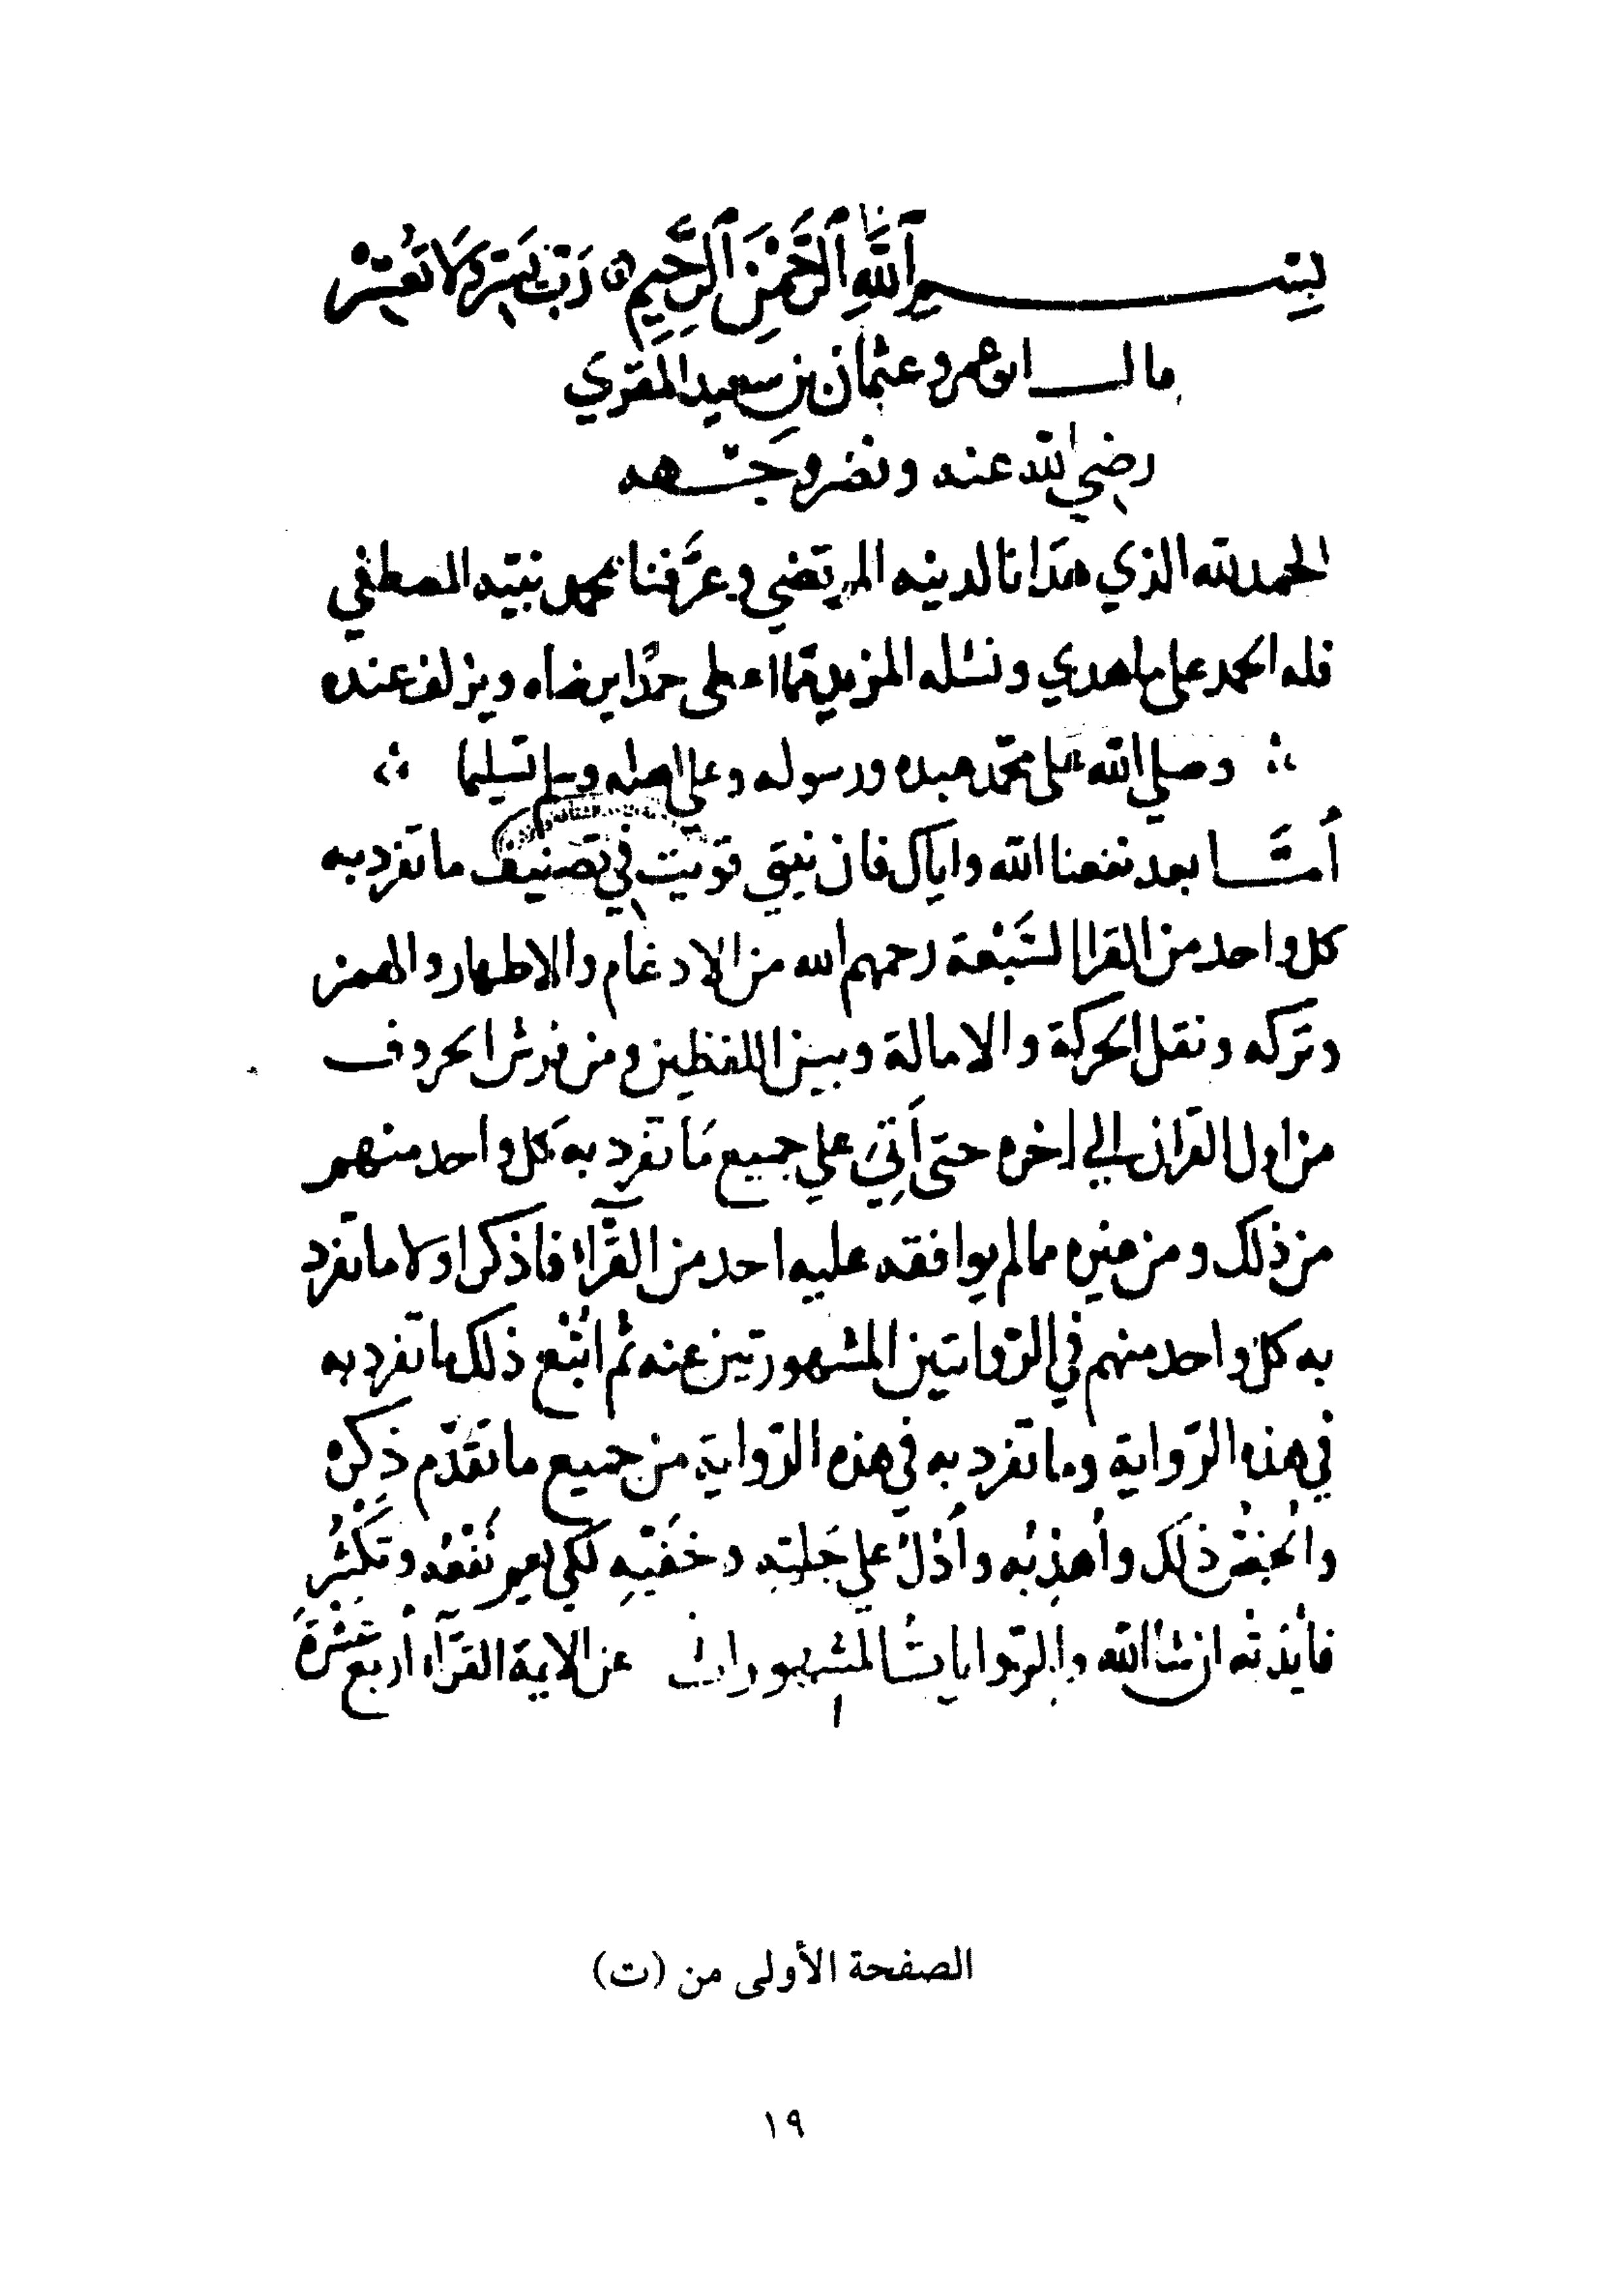 بِسْمِ ٱللَّهِ ٱلرَّحْمٰنِ ٱلرَّحِيمِ رَبِّ يَسِّرْ وَلَا تُعَسِّرْ
قال ابو عمرو عثمان بن سعيد المقري
رضي الله عنه ونضر وجهه
الحمد لله الذي هدانا لدينه المرتضي وعرَّفنا بمحمد نبيّه المصطفي
فله الحمد علي ما هدي ونسئله المزيد مما اعطي حمدًا يرضاه ويزلف عنده
وصلي الله على محمّد عبده ورسوله وعلي اهله وسلم تسليما
أمَّا بعد نفعنا الله واياك فان نيتي قويت في تصنيف ما تفرد به
كل واحد من القرا السَّبْعة رحمهم الله من الادغام والاظهار والهمز
وتركه ونقل الحركة والامالة وبين اللفظين ومن فرش الحروف
من اول القران الي اخره حتى أتِيَ علي جميع مَا تفرد به كل واحد منهم
من ذلك ومن غيره مما لم يوافقه عليه احد من القرَّاء فاذكر اولا ما تفرد
به كل واحد منهم في الرّوايتين المشهورتين عنه ثم اتْبع ذلك ما تفرد به
في هذه الرّواية وما تفرد به في هذه الرّواية من جميع ما تقدّم ذكره
وأُلخِّصُ ذلَك وأُهذِبُه وأَدُلُ علي جَليّه وخفيّهِ لكي يعم نَفْعُه وتَكْثُر
فائدته ان شا الله والرّوايات المشهورات عن الايمة القرّاء أربع عشرة
الصفحة الأولى من (ت)
١٩